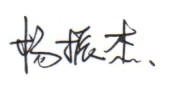 杨振杰